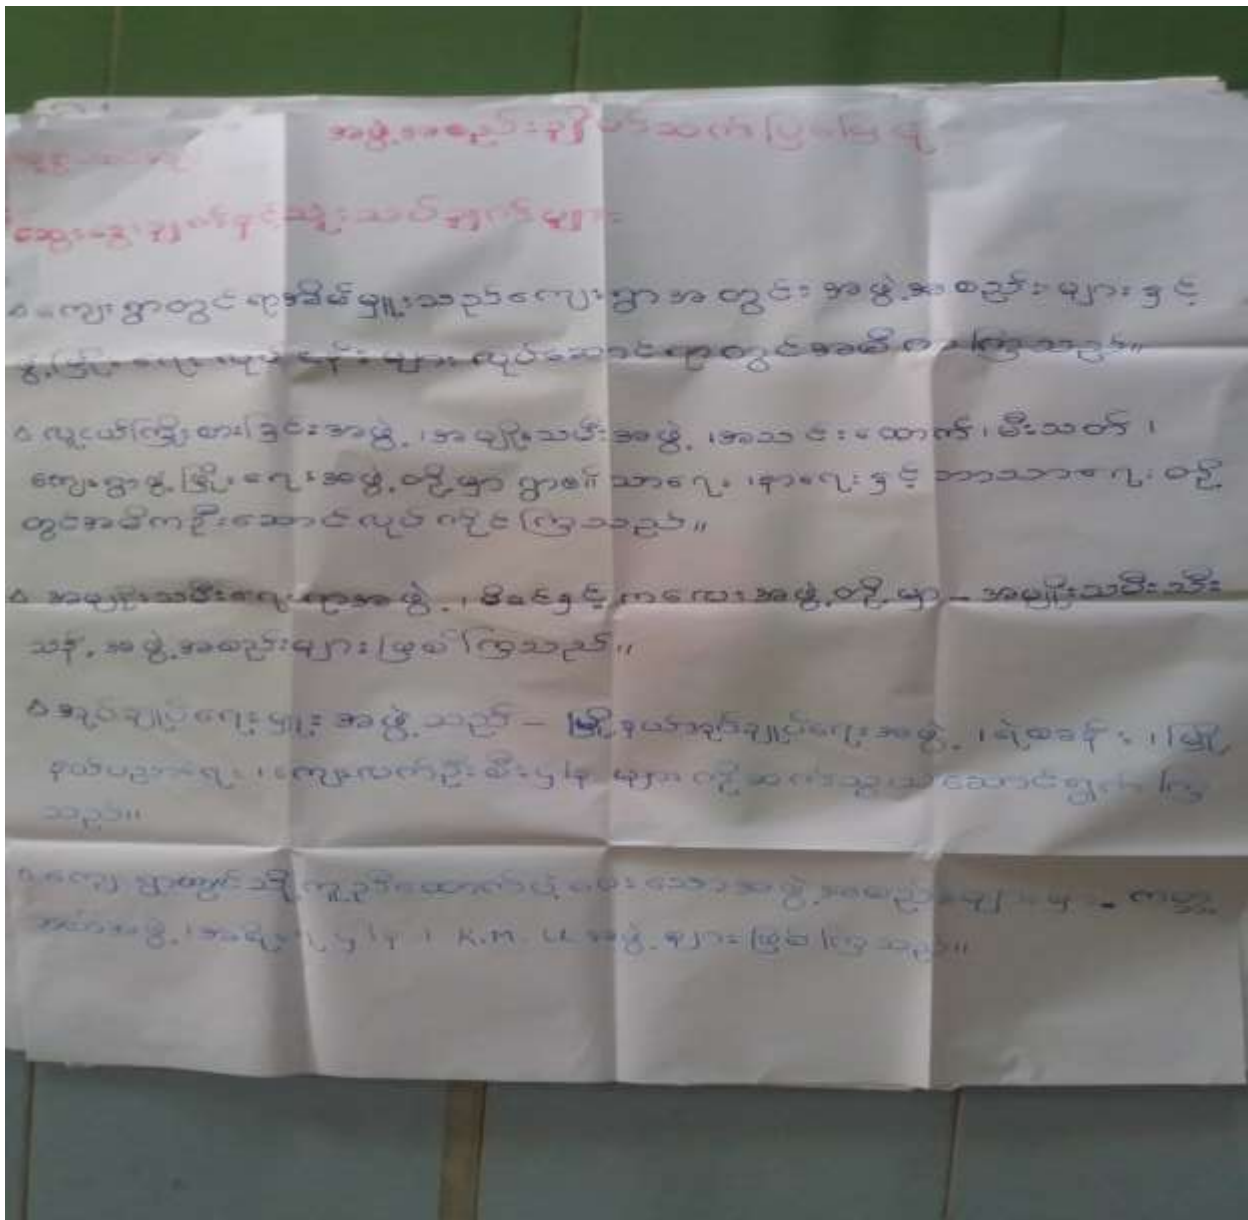 အဖွဲ့အစည်းနှင့်ပတ်သက်ပြပြေပုံ
ဆွေးနွေးချက်နှင့်သုံးသပ်ချက်များ
ကျေးရွာတွင်ရာအိမ်မှူးသည်ကျေးရွာအတွင်းအဖွဲ့အစည်းများနှင့်
ဖွံ့ဖြိုးရေးလုပ်ငန်းများလုပ်ဆောင်ရာတွင်အဓိကကြသည်။
လူငယ်ကြိုးစားခြင်းအဖွဲ့၊အမျိုးသမီးအဖွဲ့၊အသင်းထောက်၊မီးသတ်၊
ကျေးရွာဖွံ့ဖြိုးရေးအဖွဲ့တို့မှာရွာ၏သာရေး၊နာရေးနှင့်ဘာသာရေးတို့
တွင်အဓိကဦးဆောင်လုပ်ကိုင်ကြသည်။
အမျိုးသမီးရေးရာအဖွဲ့၊မိခင်နှင့်ကလေးအဖွဲ့တို့မှာ – အမျိုးသမီးသီး
သန့်အဖွဲ့အစည်းများဖြစ်ကြသည်။
အုပ်ချုပ်ရေးမှူးအဖွဲ့သည် – မြို့နယ်အုပ်ချုပ်ရေးအဖွဲ့၊ရဲစခန်း၊မြို့
နယ်ပညာရေး၊ကျေးလက်ဦးစီးဌာနများကိုဆက်သွယ်ဆောင်ရွက်ကြ
သည်။
ကျေးရွာတွင်းသို့ကူညီထောက်ပံ့ပေးသောအဖွဲ့အစည်းများမှာ –
အဖွဲ့၊ ဌာန၊ K.M.U အဖွဲ့များဖြစ်ကြသည်။